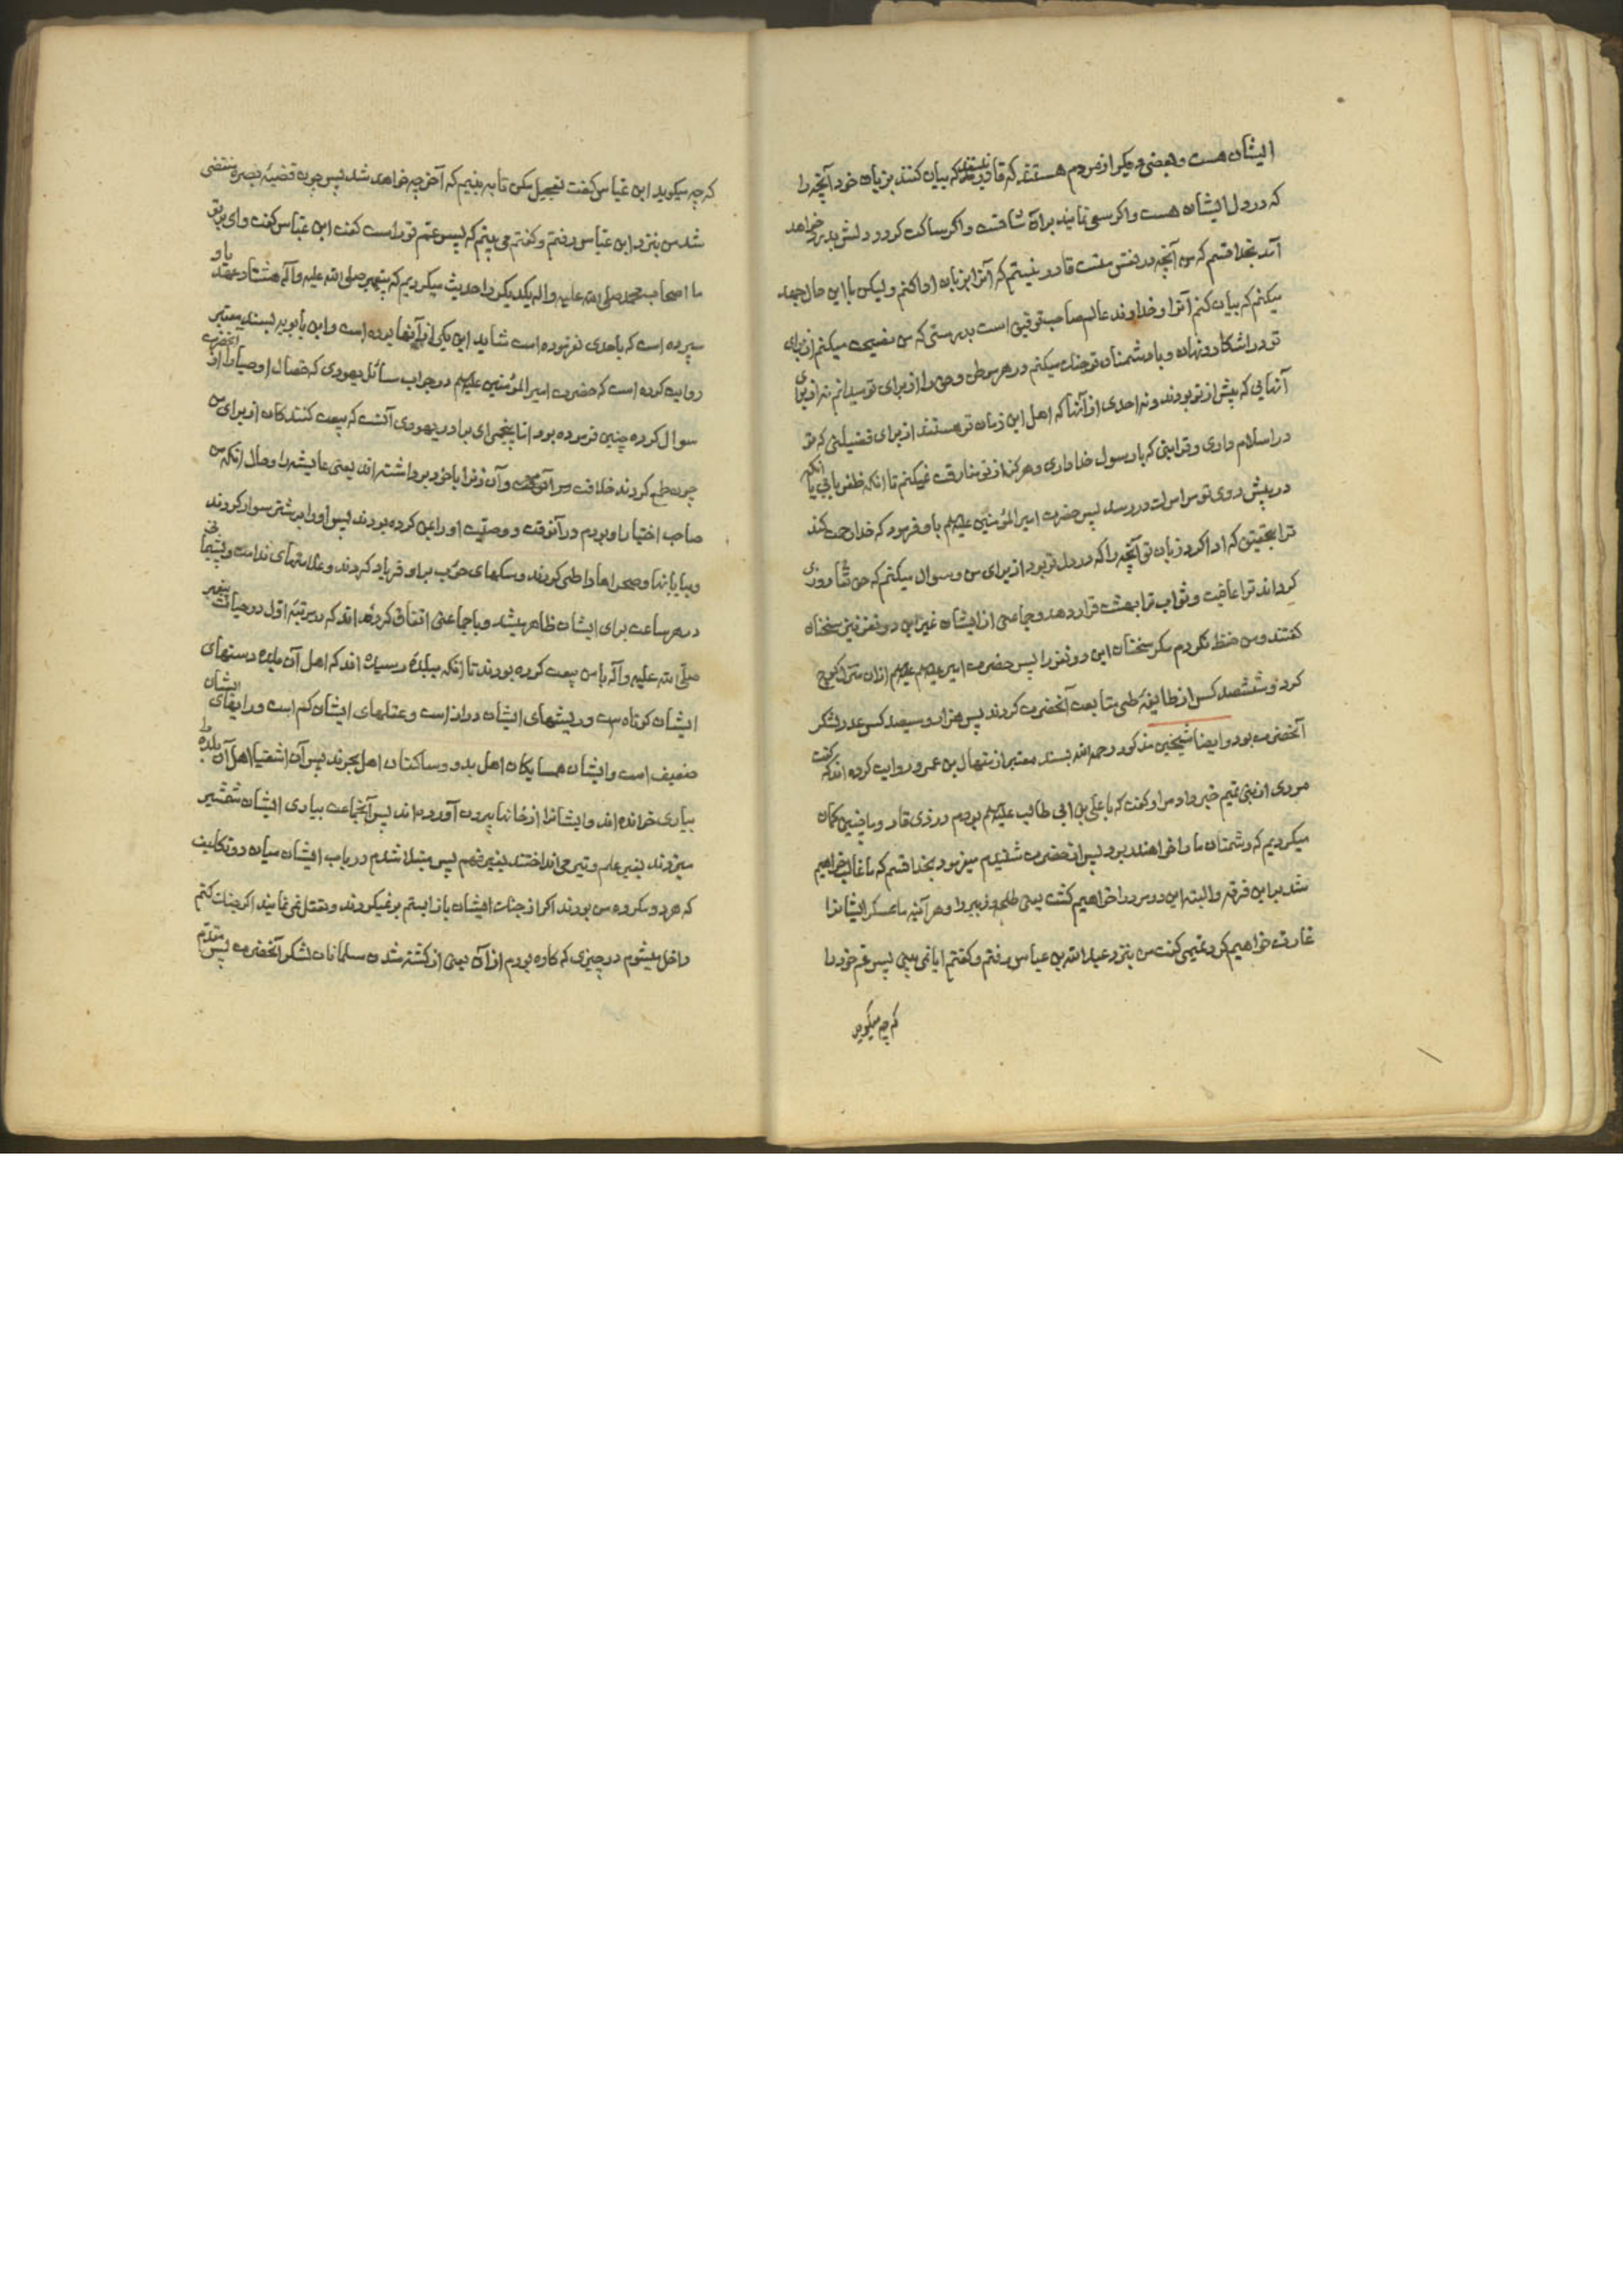 ایشان هست و بعضی دیکر از مردم هستند که قادر نیستند که بیان کنند بزبان خود آنچه را
که در دل ایشان هست و اکر سعی نمایند بر آن شاقست و اکر ساکت کردد دلش بدرد خواهد
آمد بخدا قسم که من آنچه در نفس منست قادر نیستم که آنرا بزبان ادا کنم و لیکن با این حال جهد
میکنم که بیان کنم آنرا و خداوند عالم صاحب توفیق است بدرستی که من نصیحت میکنم از برای
تو در اشکار و نهان و با دشمنان تو جنک میکنم در هر موطن و حق را از برای تو میدانم نه از برای
آنهایی که پیش از تو بودند و نه احدی از آنها که اهل این زمان تو هستند از برای فضیلتی که تو
در اسلام داری و قرابتی که با رسول خدا داری و هرکز از تو مفارقت نمیکنم تا انکه ظفر یابی یا انکه
در پیش روی تو مرا موت در رسد پس حضرت امیر المؤمنین علیه السلام باو فرمود که خدا رحمت کند
ترا بتحقیق که ادا کرد زبان تو آنچه را که در دل تو بود از برای من و سوال میکنم که حق تعالی روزی
کرداند ترا عافیت و ثواب ترا بهشت قرار دهد و جماعتی از ایشان غیر این دو نفر نیز سخنان
کفتند و من حفظ نکردم مکر سخنان این دو نفر را پس حضرت امیر علیه السلام ازان منزل کوچ
کرد و ششصد کس از طایفهٔ طی متابعت آنحضرت کردند پس هزار و سیصد کس عدد لشکر
آنحضرت بود و ایضا شیخین مذکور رحمه الله بسند معتبر از منهال بن عمرو روایت کرده اند که کفت
مردی از بنی تمیم خبر داد مرا و کفت که با علی بن ابی طالب علیه السلام بودم در ذی قار و ما چنین کمان
میکردیم که دشمنان ما را خواهند برد پس از حضرت شنیدم میفرمود بخدا قسم که ما غالب خواهیم
شد بر این فرقه و البته این دو مرد را خواهیم کشت یعنی طلحه و زبیر را و هر آینه ما عسکر ایشانرا
غارت خواهیم کرد تمیمی کفت من بنزد عبدالله بن عباس رفتم و کفتم ایا نمی بینی پسر عم خود را
که چه میکوید
که چه میکوید ابن عباس کفت تعجیل مکن تا به بینیم که آخر چه خواهد شد پس چون قضیهٔ بصره منقضی
شد من بنزد ابن عباس رفتم و کفتم می بینم که پسر عم تو راست کفت ابن عباس کفت وای بر تو
ما اصحاب محمد صلی الله علیه و اله یکدیکر را حدیث میکردیم که پیغمبر صلی الله علیه و آله هشتاد عهد باو
سپرده است که باحدی نفرموده است شاید این یکی از آنها بوده است و ابن بابویه بسند معتبر
روایت کرده است که حضرت امیر المؤمنین علیه السلام در جواب سائل یهودی که خصال اوصیا را از آنحضرت
سوال کرده چنین فرموده بود اما پنجمی ای برادر یهودی آنست که بیعت کنندکان از برای من
چون طمع کردند خلافت و آن زنرا با خود برداشته اند یعنی عایشه را و حال انکه من
صاحب اختیار او بودم در آنوقت و وصیت او را بمن کرده بودند پس او را بر شتر سوار کردند
و بیابانها و صحراها را طی کردند و سکهای حوب بر او فریاد کردند و علامتهای ندامت و پشیمانی
در هر ساعت برای ایشان ظاهر میشد و با جماعتی اتفاق کرده اند که در مرتبهٔ اول در حیات پیغمبر
صلی الله علیه و آله با من بیعت کرده بودند تا انکه ببلدهٔ رسیده اند که اهل آن بلده دستهای
ایشان کوتاه است و ریشهای ایشان دراز است و عقلهای ایشان کم است و رایهای ایشان
ضعیف است و ایشان همسایکان اهل بدو و ساکنان اهل بحرند پس آن اشقیا اهل آن بلده را
بیاری خوانده اند و ایشانرا از خانها بیرون آورده اند پس آنجماعت بیاری ایشان شمشیر
میزدند بغیر علم و تیر می انداختند بغیر فهم پس مبتلا شدم در باب ایشان میان دو تکلیف
که هر دو مکروه من بودند اکر از جنک ایشان باز ایستم بر نمیکردند و بعقل نمی نمایند اکر جنک کنم
داخل میشوم در چیزی که کاره بودم از آن یعنی از کشته شدن مسلمانان لشکر آنحضرت پس مقدم